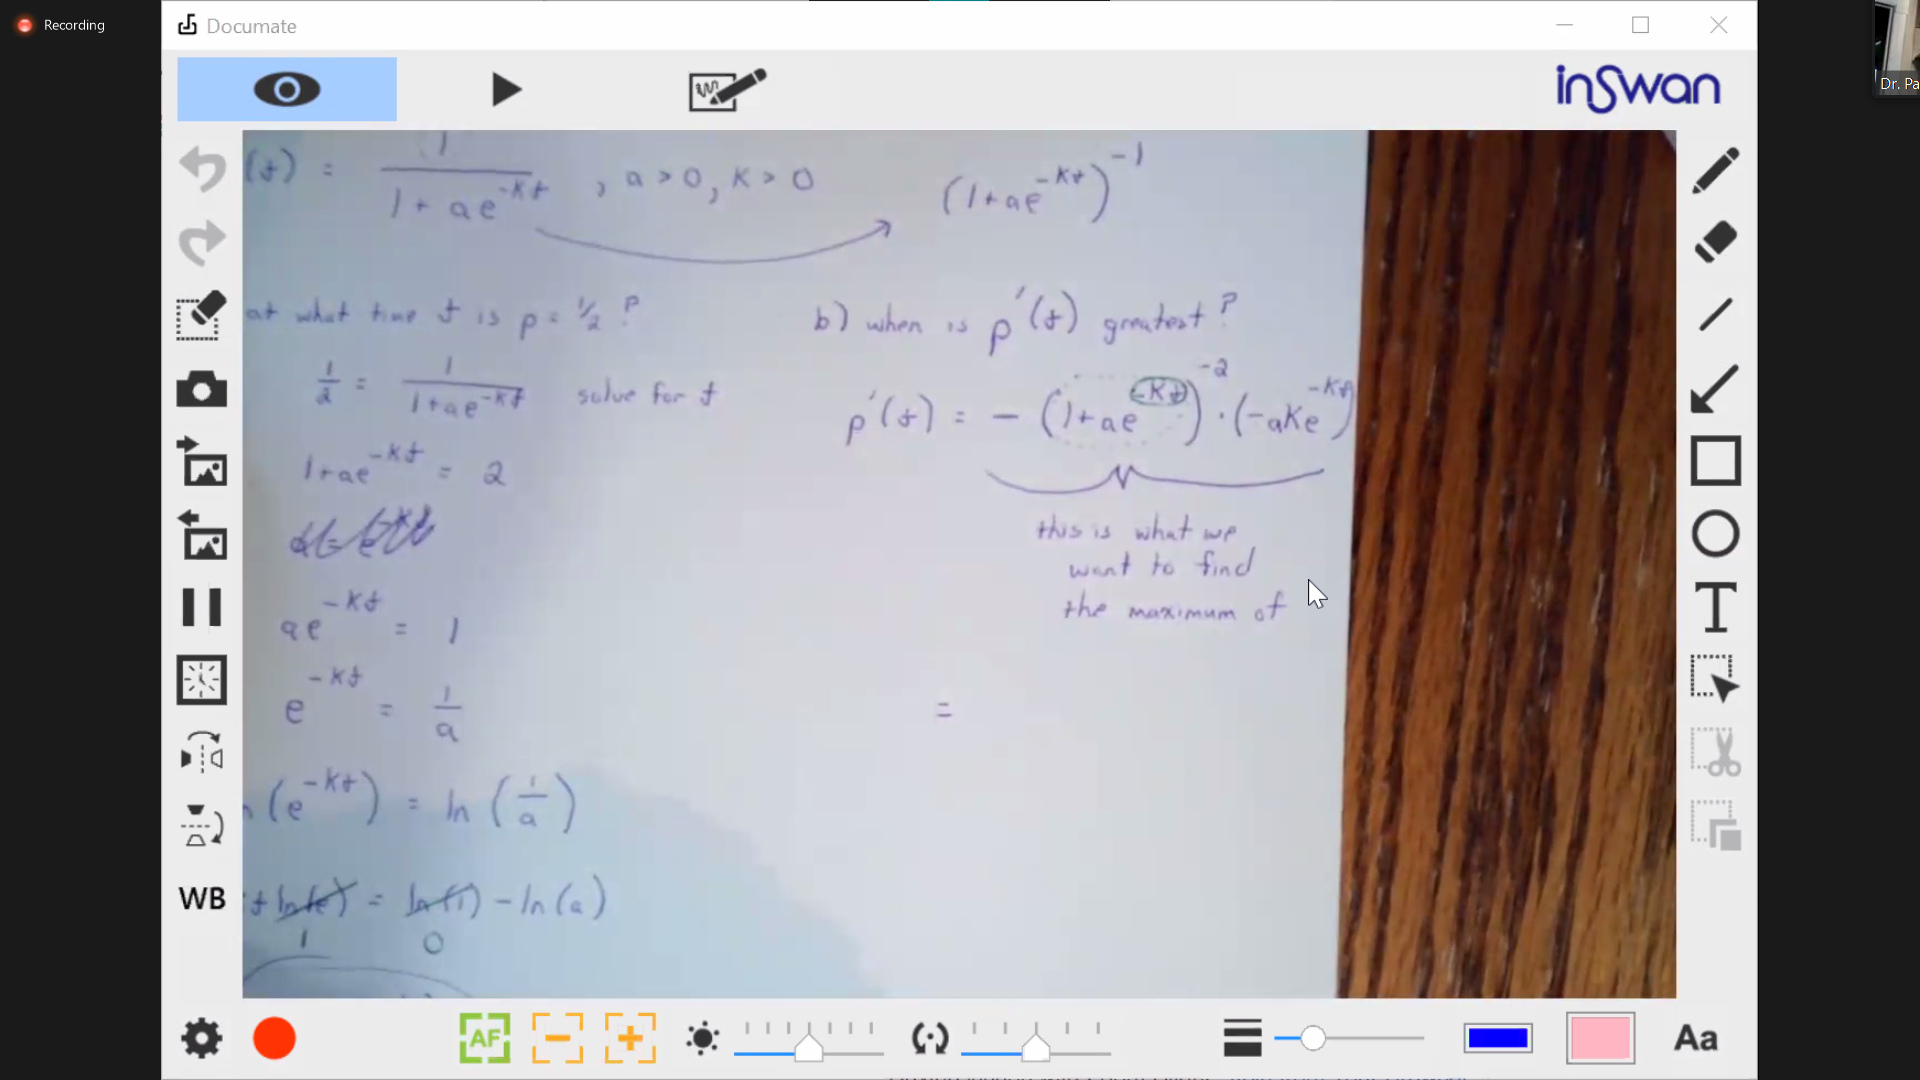 Recording
Documate
inSwan
Dr. Pa
(t) = 1 / 1 + ae^-kt , a > 0, k > 0
(1+ae^-kt)^-1
at what time t is p = 1/2 ?
1/2 = 1 / 1+ae^-kt solve for t
1+ae^-kt = 2
ae^-kt = 1
e^-kt = 1/a
(e^-kt) = ln (1/a)
t ln(e) = ln(1) - ln(a)
1 0
b) when is p'(t) greatest ?
p'(t) = - (1+ae^-kt)^-2 · (-ake^-kt)
this is what we
want to find
the maximum of
=
WB
AF
T
Aa